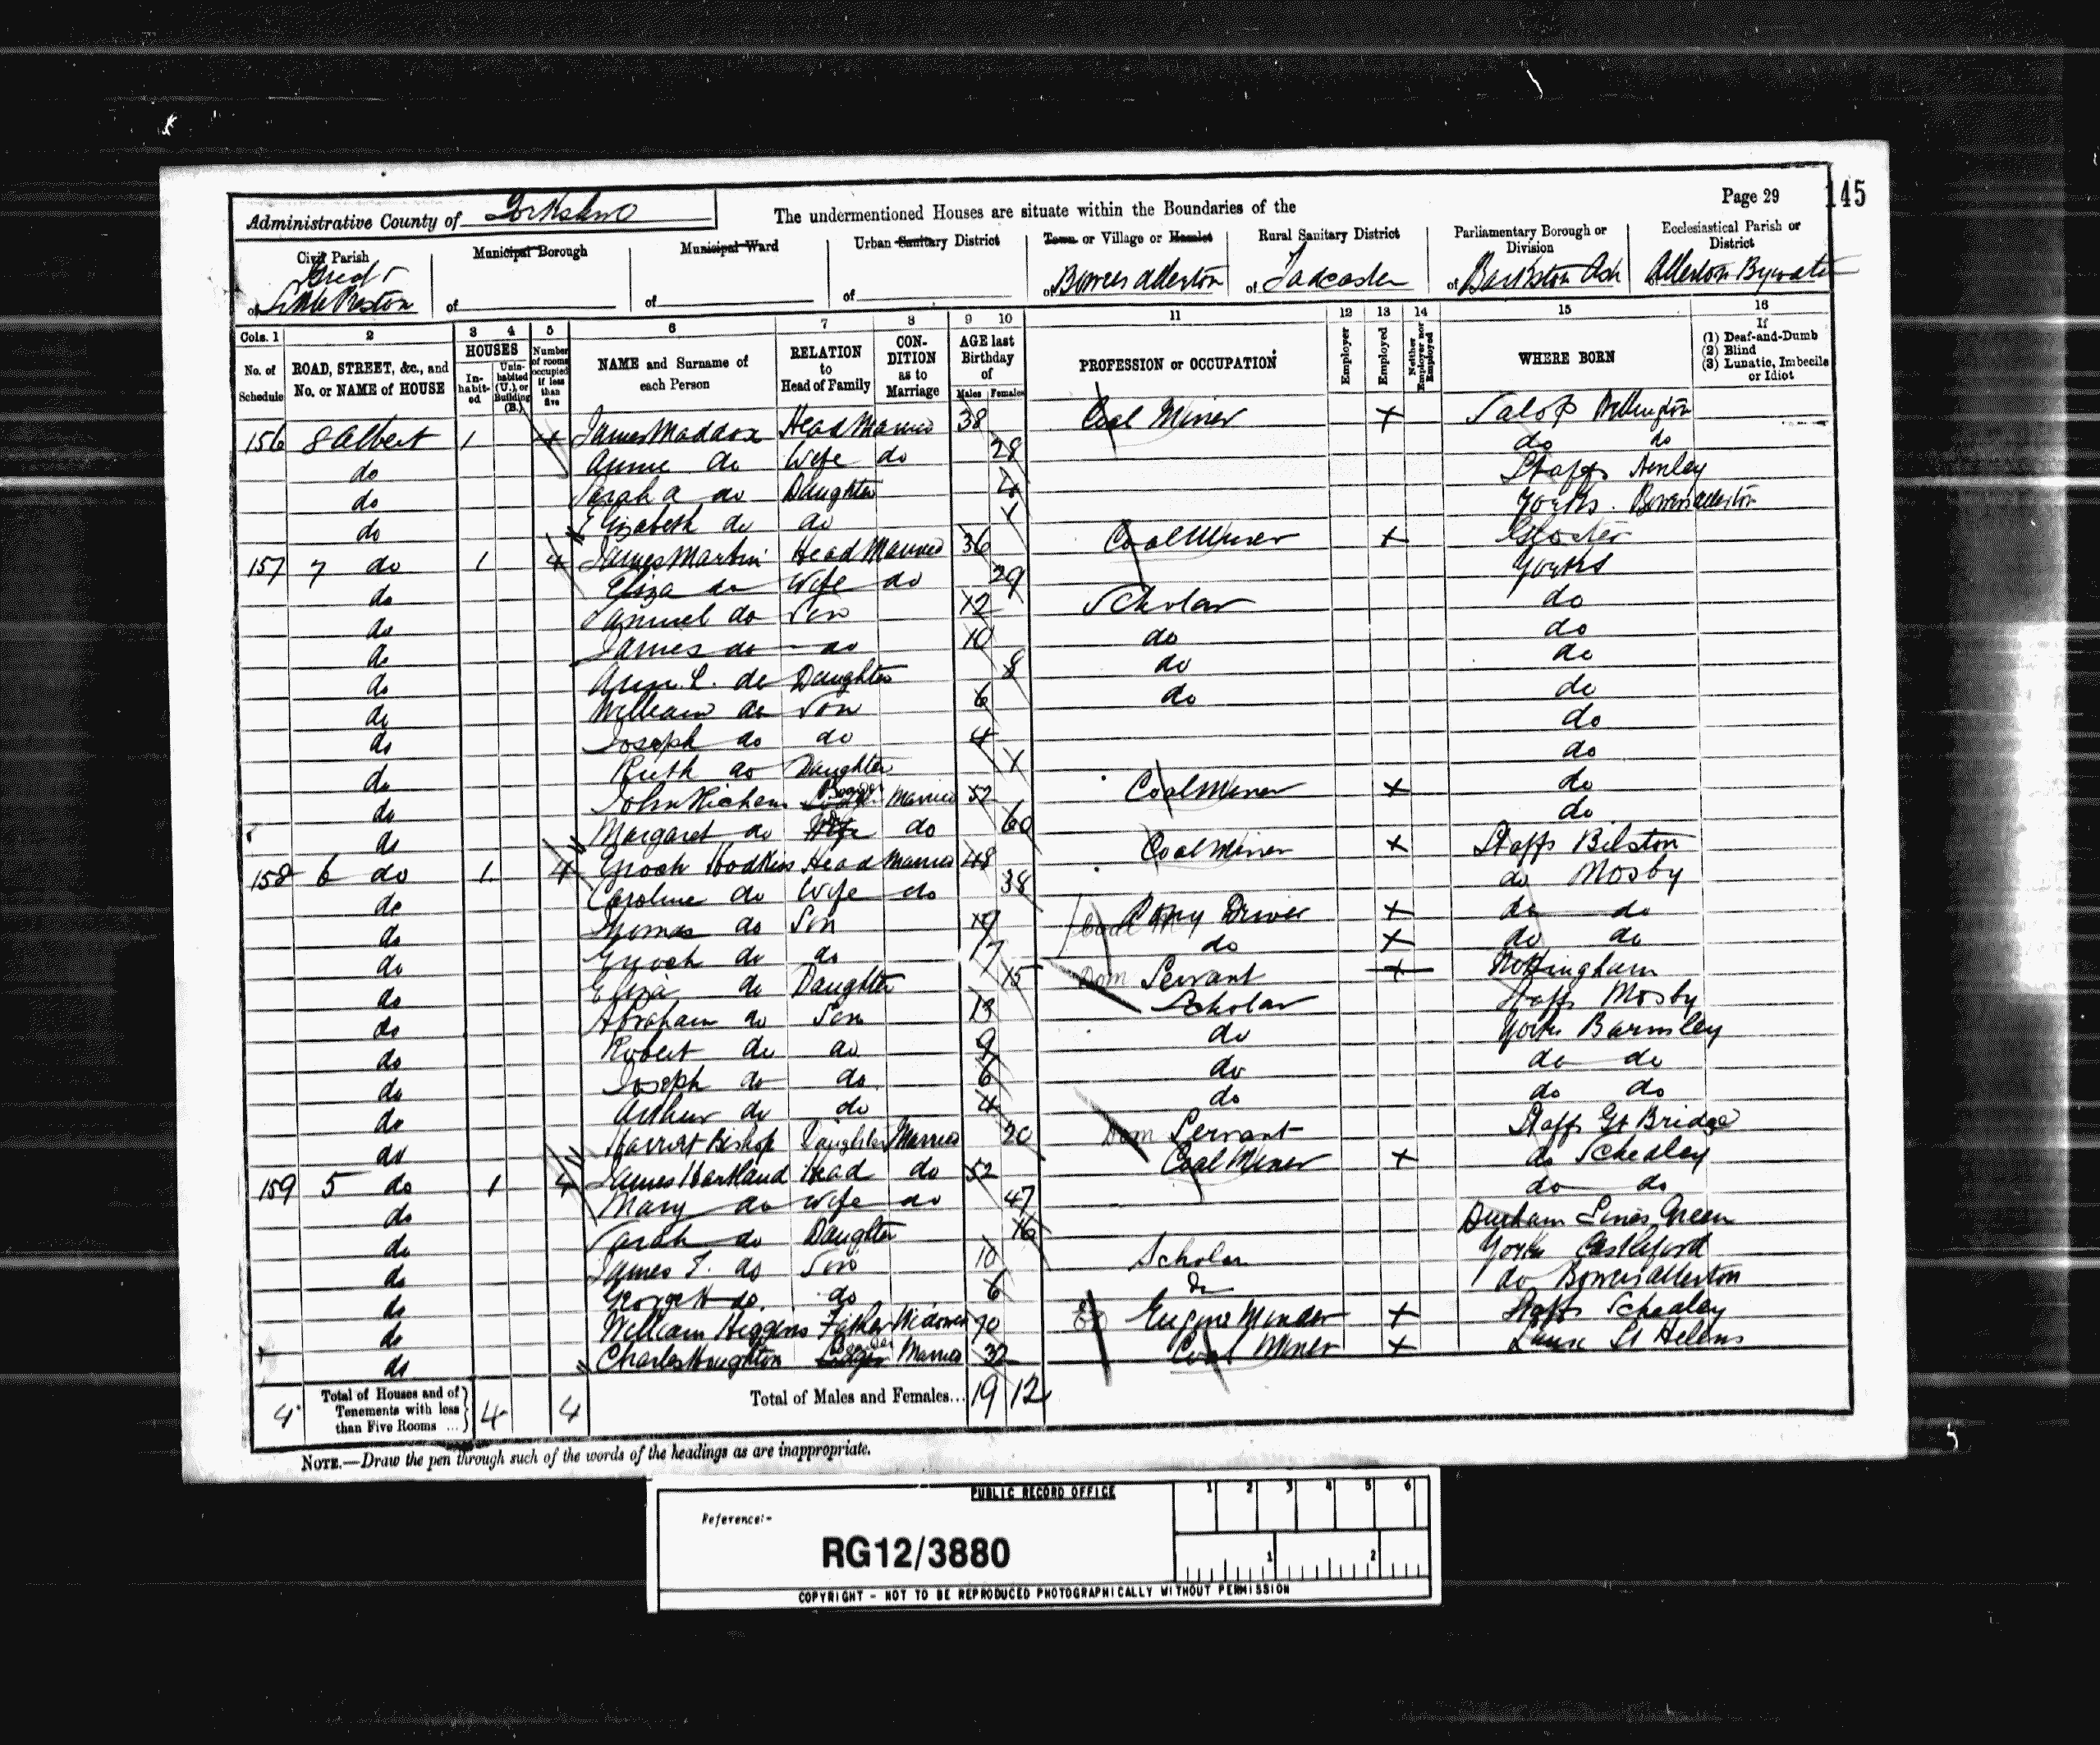 Page 29 145
Administrative County of Yorkshire The undermentioned Houses are situate within the Boundaries of the
Civil Parish Municipal Borough Municipal Ward Urban Sanitary District Town or Village or Hamlet Rural Sanitary District Parliamentary Borough or Division Ecclesiastical Parish or District
of Great & Little Preston of of of of Bowers Allerton of Tadcaster of Barkston Ash of Allerton Bywater
Cols. 1 2 3 4 5 6 7 8 9 10 11 12 13 14 15 16
No. of Schedule ROAD, STREET, &c., and No. or NAME of HOUSE HOUSES In-habit-ed Unin-habited (U.), or Building (B.) Number of rooms occupied if less than five NAME and Surname of each Person RELATION to Head of Family CON-DITION as to Marriage AGE last Birthday of Males Females PROFESSION or OCCUPATION Employer Employed Neither Employer nor Employed WHERE BORN If (1) Deaf-and-Dumb (2) Blind (3) Lunatic, Imbecile or Idiot
156 8 Albert 1 4 James Maddox Head Married 38 Coal Miner X Salop Wellington
do Annie do Wife do 28 do do
do Sarah A do Daughter 4 Staffs
do Elizabeth do do 1 Yorks. Bowers Allerton
157 7 do 1 4 James Martin Head Married 36 Coal Miner X Gloster
do Eliza do Wife do 29 Yorks
do Samuel do Son 12 Scholar do
do James do do 10 do do
do Ann. L. do Daughter 8 do do
do William do Son 6 do do
do Joseph do do 4 do
do Ruth do Daughter 1 do
do John Boarder Married 52 Coal Miner X do
do Margaret do Wife do 60 do
158 6 do 1 4 Enoch Hodkiss Head Married 48 Coal Miner X Staffs Bilston
do Caroline do Wife do 38 do Mosby
do Thomas do Son 19 Pony Driver X do do
do Enoch do do 17 do X do do
do Eliza do Daughter 15 Dom Servant X Nottingham
do Abraham do Son 13 Scholar Staffs Mosby
do Robert do do 9 do Yorks Barnsley
do Joseph do do 6 do do do
do Arthur do do 4 do do do
do Harriet Bishop Daughter Married 20 Dom Servant Staffs Gt Bridge
159 5 do 1 4 James Hartland Head do 52 Coal Miner X do Schedley
do Mary do Wife do 47 do do
do Sarah do Daughter 16 Durham Green
do James T. do Son 10 Scholar Yorks Castleford
do George H do. do 6 do do Bowers Allerton
do William Higgins Father Widower 70 Engine Minder X Staffs Schedley
do Charles Houghton Boarder Married 32 Coal Miner X Lanc St Helens
4 Total of Houses and of Tenements with less than Five Rooms ... 4 4 Total of Males and Females... 19 12
NOTE.—Draw the pen through such of the words of the headings as are inappropriate.
PUBLIC RECORD OFFICE
1 2 3 4 5 6
Reference:-
RG12/3880
1 2
COPYRIGHT - NOT TO BE REPRODUCED PHOTOGRAPHICALLY WITHOUT PERMISSION